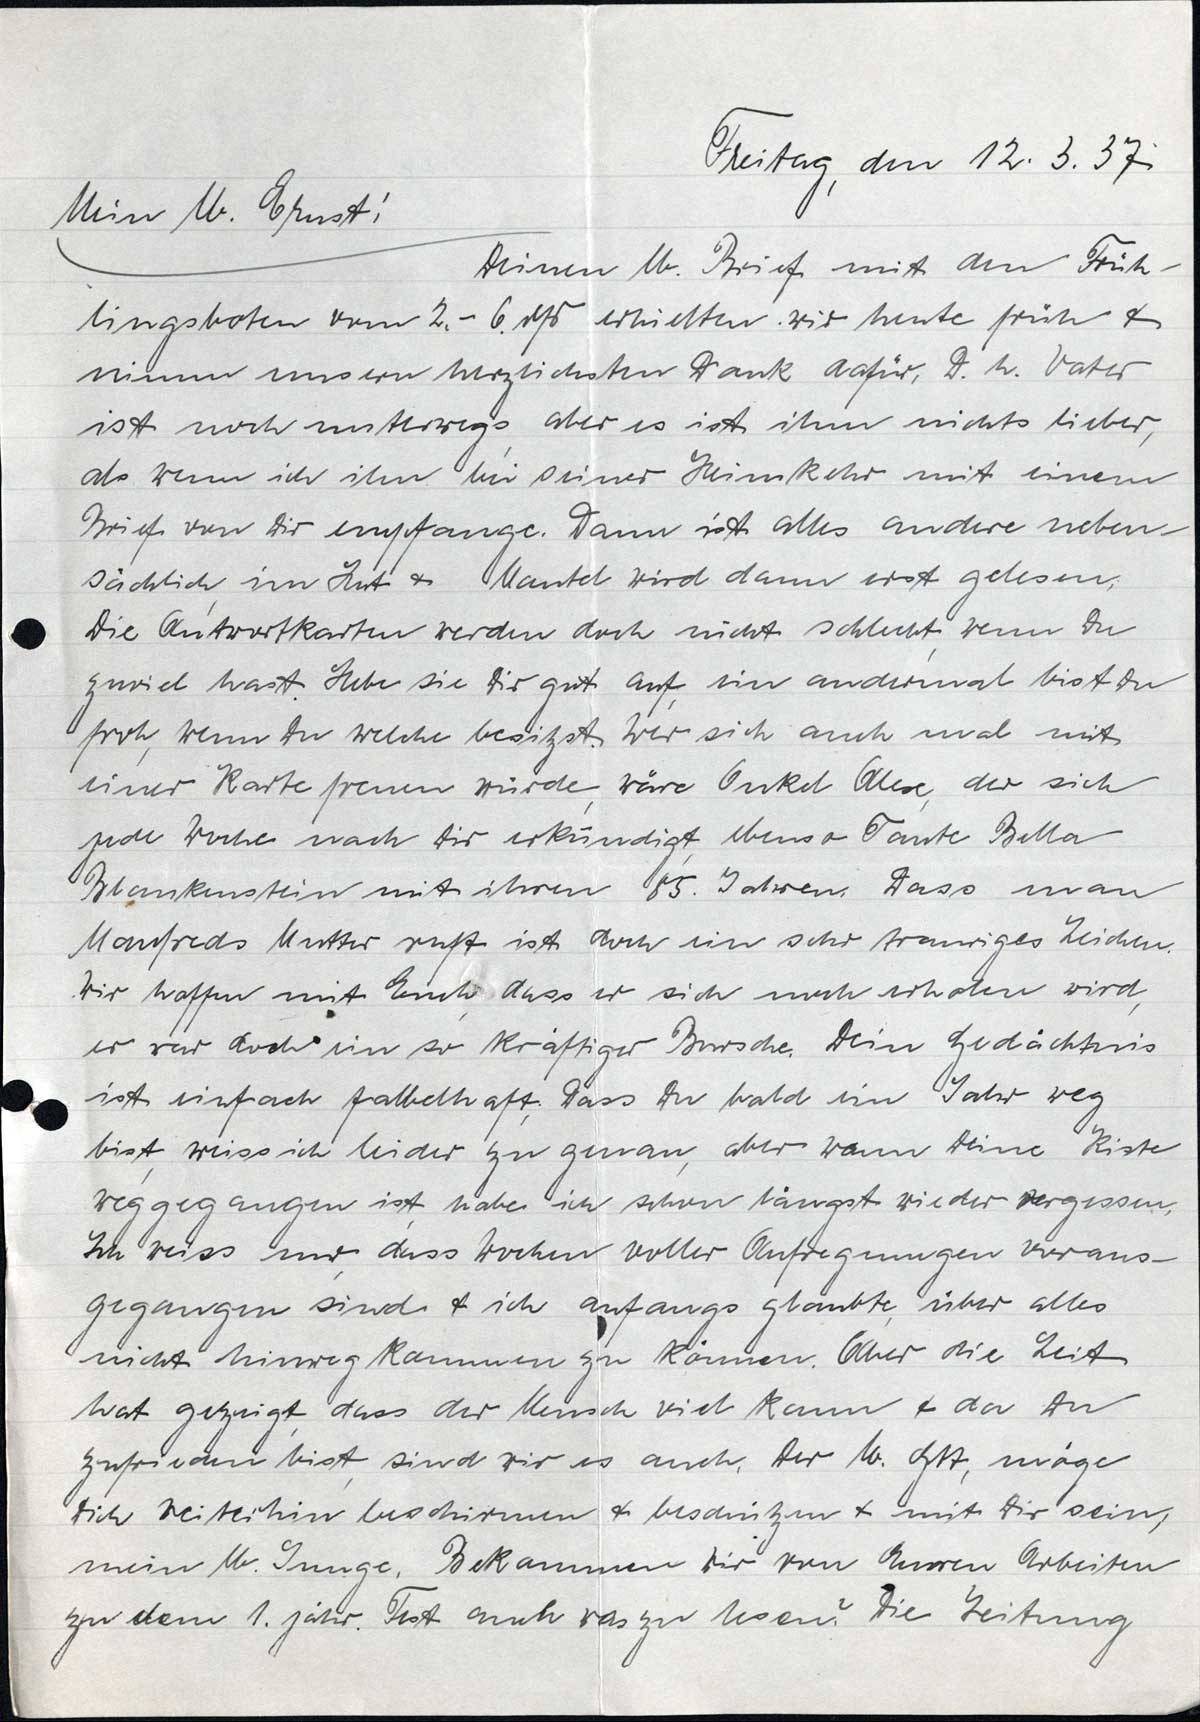 Freitag, den 12. 3. 37.
Mein lb. Ernst!
Deinen lb. Brief mit den Früh-
lingsboten vom 2. - 6. dfs erhielten wir heute früh &
nimm unsern herzlichsten Dank dafür. D. h. Vater
ist noch unterwegs, aber es ist ihm nichts lieber,
als wenn ich ihn bei seiner Heimkehr mit einem
Brief von Dir empfange. Dann ist alles andere neben-
sächlich, im Hut & Mantel wird dann erst gelesen.
Die Antwortkarten werden doch nicht schlecht, wenn Du
zuviel hast. Hebe sie Dir gut auf, ein andermal bist Du
froh, wenn Du welche besitzst. Wer sich auch mal mit
einer Karte freuen würde, wäre Onkel Alex, der sich
jede Woche nach Dir erkundigt, ebenso Tante Bella
Blankenstein mit ihren 85. Jahren. Dass man
Manfreds Mutter ruft ist doch ein sehr trauriges Zeichen.
Wir hoffen mit Euch, dass er sich noch erholen wird,
er war doch ein so kräftiger Bursche. Dein Gedächtnis
ist einfach fabelhaft. Dass Du bald ein Jahr weg
bist, weiss ich leider zu genau, aber wann Deine Kiste
weggegangen ist, habe ich schon längst wieder vergessen.
Ich weiss nur, dass Wochen voller Aufregungen voraus-
gegangen sind & ich anfangs glaubte, über alles
nicht hinweg kommen zu können. Aber die Zeit
hat gezeigt, dass der Mensch viel kann & da Du
zufrieden bist, sind wir es auch. Der lb. Gtt, möge
Dich weiterhin beschirmen & beschützen & mit Dir sein,
mein lb. Junge. Bekommen wir von Euren Arbeiten
zu dem 1. jähr. Fest auch was zu lesen? Die Zeitung